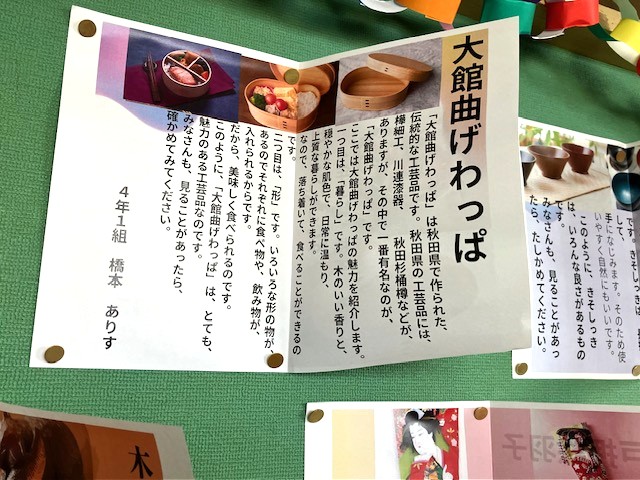 大館曲げわっぱ
「大館曲げわっぱ」は秋田県で作られた、
伝統的な工芸品です。秋田県の工芸品には、
樺細工、川連漆器、秋田杉桶樽などが、
ありますが、その中で一番有名なのが、
「大館曲げわっぱ」です。
ここでは大館曲げわっぱの魅力を紹介します。
一つ目は、「暮らし」です。木のいい香りと、
穏やかな肌色で、日常に温もり、
上質な暮らしができます。
なので、落ち着いて、食べることができるの
です。
二つ目は、「形」です。いろいろな形の物が
あるのでそれぞれに食べ物や、飲み物が、
入れられるからです。
だから、美味しく食べられるのです。
このように、「大館曲げわっぱ」は、とても、
魅力のある工芸品なのです。
みなさんも、見ることがあったら、
確かめてみてください。
4年1組 橋本 ありす
です。きそしっき
して、
手になじみます。そのため使
いやすく自然にもいいです。
このように、きそしっき
は、いろんな良さがあるもの
です。
みなさんも、見ることがあっ
たら、たしかめてください。
木
羽子